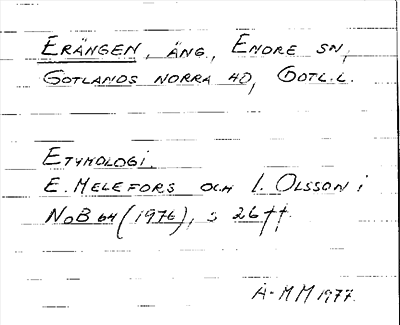 ERÄNGEN, ÄNG, ENDRE SN,
GOTLANDS NORRA HD, GOTL.L.
ETYMOLOGI.
E. MELEFORS OCH I. OLSSON i
NoB 64 (1976), s 26 ff.
A-MM 1977.